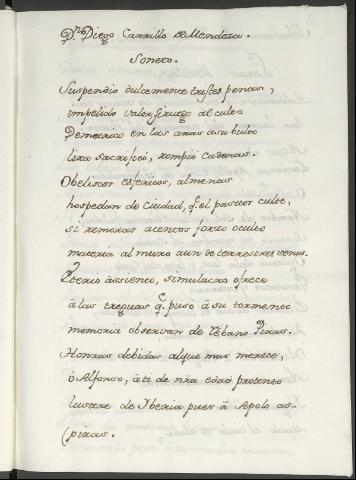 D.ⁿ Diego Carrillo de Mendoza.
Soneto.
Suspendio dulcemente tristes penas,
impelido valor al culto
Demetrico en las aras su bulto
lira sacrificó, rompio cadenas.
Obeliscos esfericos, almenas
hospedan de Ciudad, q.e el pastor culto,
si remoras acentos forzo oculto
materia al muro aun de terrestres venas.
Pterio àssiento, simulacro ofrece
à las treguas q.e puso à su tormento
memoria observan de Tebano Piras.
Honras debidas al que mas merece,
ó Alfonso, à ti de nra edad portento
lustre de Iberia pues à Apolo as-
piras.